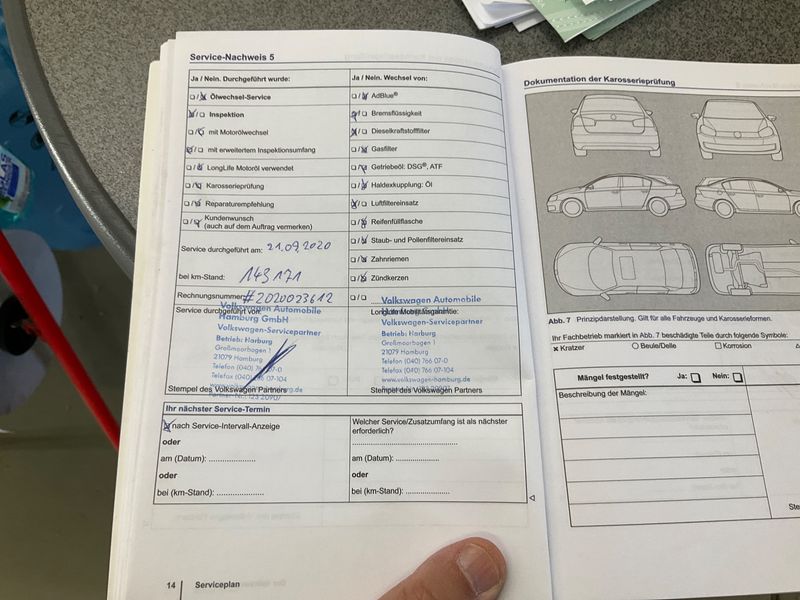 Service-Nachweis 5
Ja / Nein. Durchgeführt wurde:
Ölwechsel-Service
Inspektion
mit Motorölwechsel
mit erweitertem Inspektionsumfang
LongLife Motoröl verwendet
Karosserieprüfung
Reparaturempfehlung
Kundenwunsch
(auch auf dem Auftrag vermerken)
Service durchgeführt am: 21.09.2020
bei km-Stand: 143171
Rechnungsnummer: #2020023612
Service durchgeführt von:
Volkswagen Automobile
Hamburg GmbH
Volkswagen-Servicepartner
Betrieb: Harburg
Großmoorbogen 1
21079 Hamburg
Telefon (040) 766 07-0
Telefax (040) 766 07-104
www.volkswagen-hamburg.de
Stempel des Volkswagen Partners
Ja / Nein. Wechsel von:
AdBlue®
Bremsflüssigkeit
Dieselkraftstofffilter
Gasfilter
Getriebeöl: DSG®, ATF
Haldexkupplung: Öl
Luftfiltereinsatz
Reifenfüllflasche
Staub- und Pollenfiltereinsatz
Zahnriemen
Zündkerzen
LongLife Mobilitätsgarantie:
Volkswagen Automobile
Hamburg GmbH
Volkswagen-Servicepartner
Betrieb: Harburg
Großmoorbogen 1
21079 Hamburg
Telefon (040) 766 07-0
Telefax (040) 766 07-104
www.volkswagen-hamburg.de
Stempel des Volkswagen Partners
Ihr nächster Service-Termin
nach Service-Intervall-Anzeige
oder
am (Datum): .....................
oder
bei (km-Stand): .....................
Welcher Service/Zusatzumfang ist als nächster
erforderlich?
am (Datum): .....................
oder
bei (km-Stand): .....................
14 Serviceplan
Dokumentation der Karosserieprüfung
Abb. 7 Prinzipdarstellung. Gilt für alle Fahrzeuge und Karosserieformen.
Ihr Fachbetrieb markiert in Abb. 7 beschädigte Teile durch folgende Symbole:
× Kratzer ○ Beule/Delle □ Korrosion
Mängel festgestellt? Ja: Nein:
Beschreibung der Mängel: